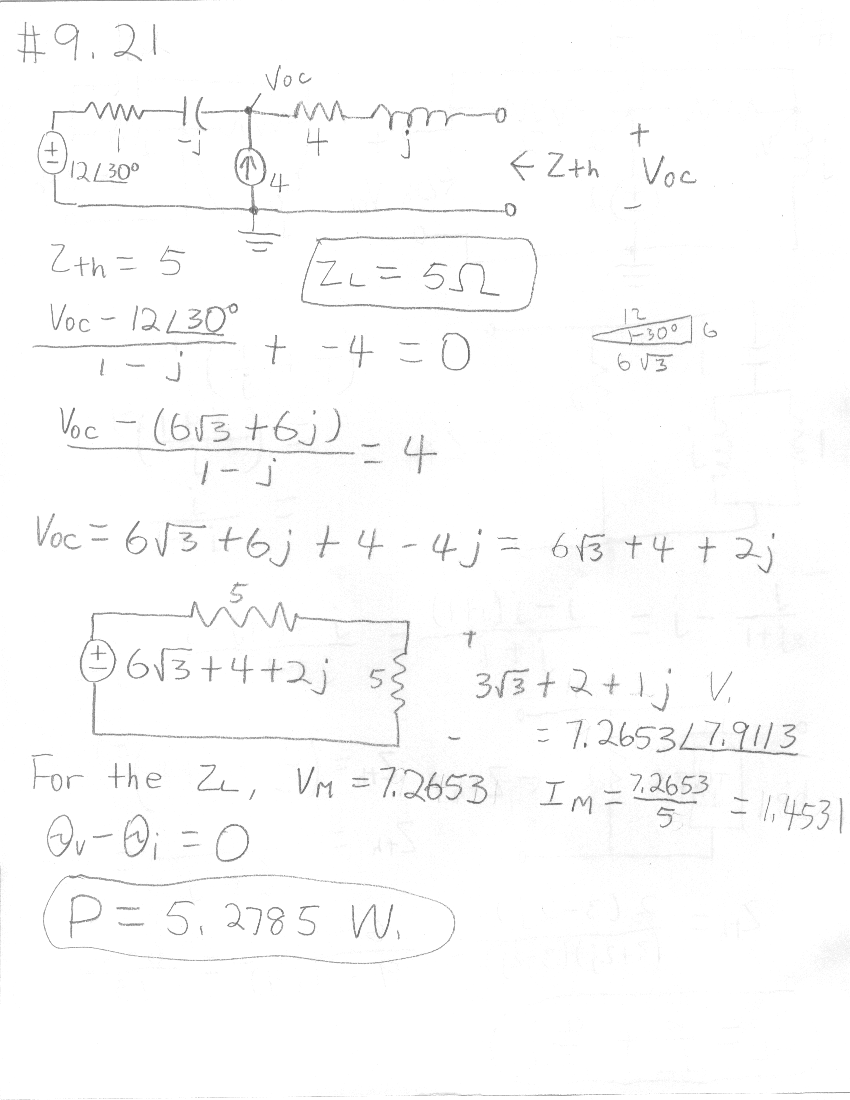 #9.21
Voc
1 -j 4 j
12∠30° 4 ← Zth + Voc -
Zth = 5 ZL = 5Ω
(Voc - 12∠30°)/(1 - j) + -4 = 0
12 30° 6 6√3
(Voc - (6√3 + 6j))/(1 - j) = 4
Voc = 6√3 + 6j + 4 - 4j = 6√3 + 4 + 2j
5
6√3 + 4 + 2j 5 + 3√3 + 2 + 1j V.
- = 7.2653∠7.9113
For the ZL, VM = 7.2653 IM = 7.2653/5 = 1.4531
θv - θi = 0
P = 5.2785 W.